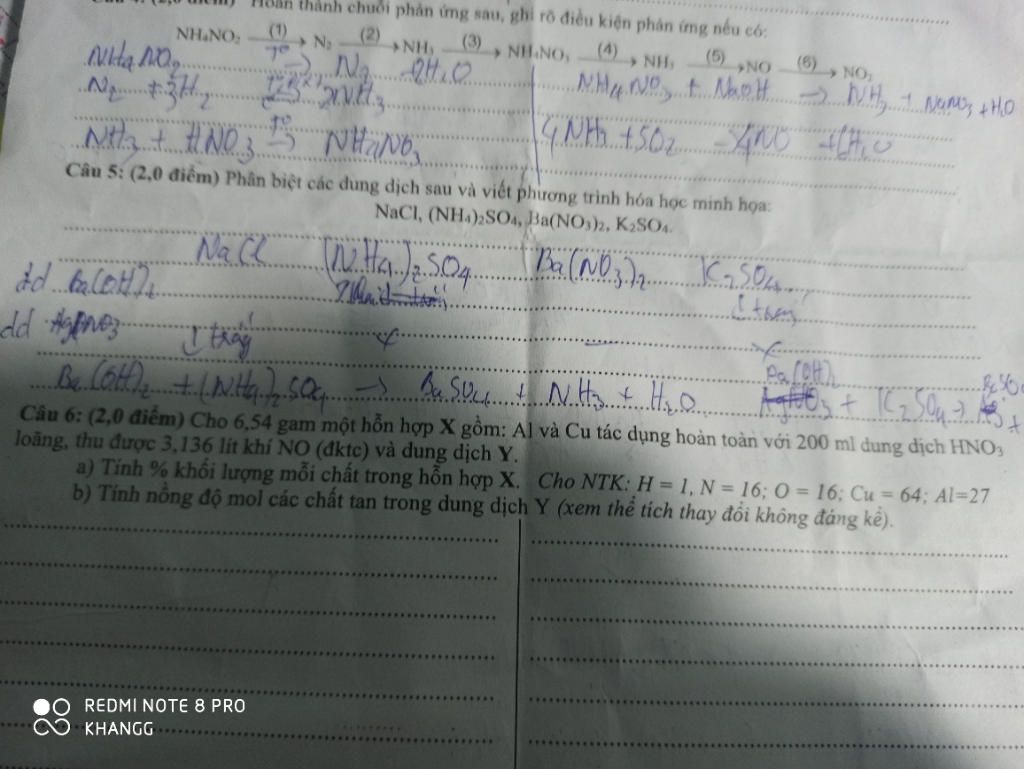 Hoàn thành chuỗi phản ứng sau, ghi rõ điều kiện phản ứng nếu có:
NH₄NO₂ (1)→ N₂ (2)→ NH₃ (3)→ NH₄NO₃ (4)→ NH₃ (5)→ NO (6)→ NO₂
NH4NO2 t° → N2 2H2O
NH4NO3 + NaOH → NH3 + NaNO3 + H2O
N2 + 3H2 2NH3
NH3 + HNO3 t° → NH4NO3
4NH3 + 5O2 → 4NO + 6H2O
Câu 5: (2,0 điểm) Phân biệt các dung dịch sau và viết phương trình hóa học minh họa:
NaCl, (NH₄)₂SO₄, Ba(NO₃)₂, K₂SO₄.
NaCl (NH4)2SO4 Ba(NO3)2 K2SO4
dd Ba(OH)2
dd AgNO3 ↓ trắng
Ba(OH)2 + (NH4)2SO4 → BaSO4 + NH3 + H2O
Ba(OH)2 + K2SO4 →
Câu 6: (2,0 điểm) Cho 6,54 gam một hỗn hợp X gồm: Al và Cu tác dụng hoàn toàn với 200 ml dung dịch HNO₃
loãng, thu được 3,136 lít khí NO (đktc) và dung dịch Y.
a) Tính % khối lượng mỗi chất trong hỗn hợp X. Cho NTK: H = 1, N = 16; O = 16; Cu = 64; Al=27
b) Tính nồng độ mol các chất tan trong dung dịch Y (xem thể tích thay đổi không đáng kể).
REDMI NOTE 8 PRO
KHANGG